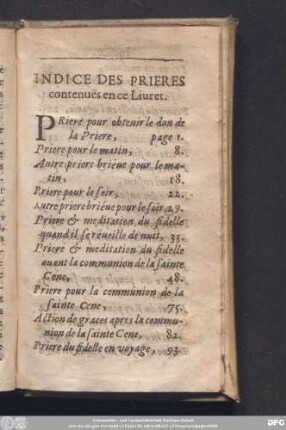 INDICE DES PRIERES
contenuës en ce Liuret.
PRiere pour obtenir le don de
la Priere, page 1.
Priere pour le matin, 8.
Autre priere briéue pour le ma-
tin, 18.
Priere pour le soir, 22.
Autre priere briéue pour le soir 29.
Priere & meditation du fidelle
quand il se réueille de nuit, 33.
Priere & meditation du fidelle
auant la communion de la sainte
Cene, 48.
Priere pour la communion de la
sainte Cene, 75.
Action de graces apres la commu-
nion de la sainte Cene, 82.
Priere du fidelle en voyage, 93.
DFG